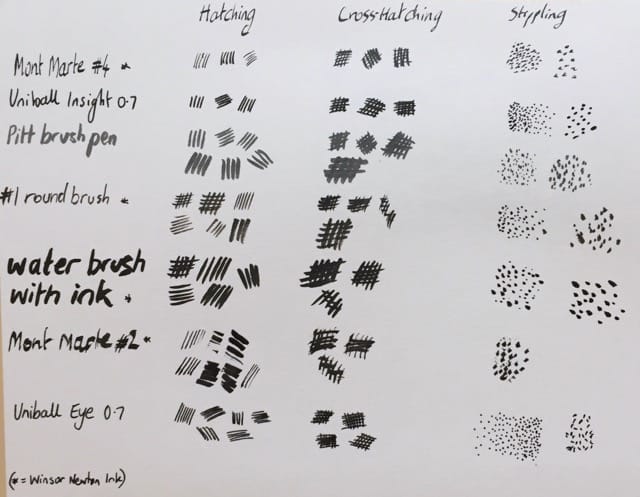 Hatching Cross-Hatching Stippling
Mont Marte #4 *
Uniball Insight 0.7
Pitt brush pen
#1 round brush *
water brush
with ink *
Mont Marte #2 *
Uniball Eye 0.7
(* = Winsor Newton Ink)